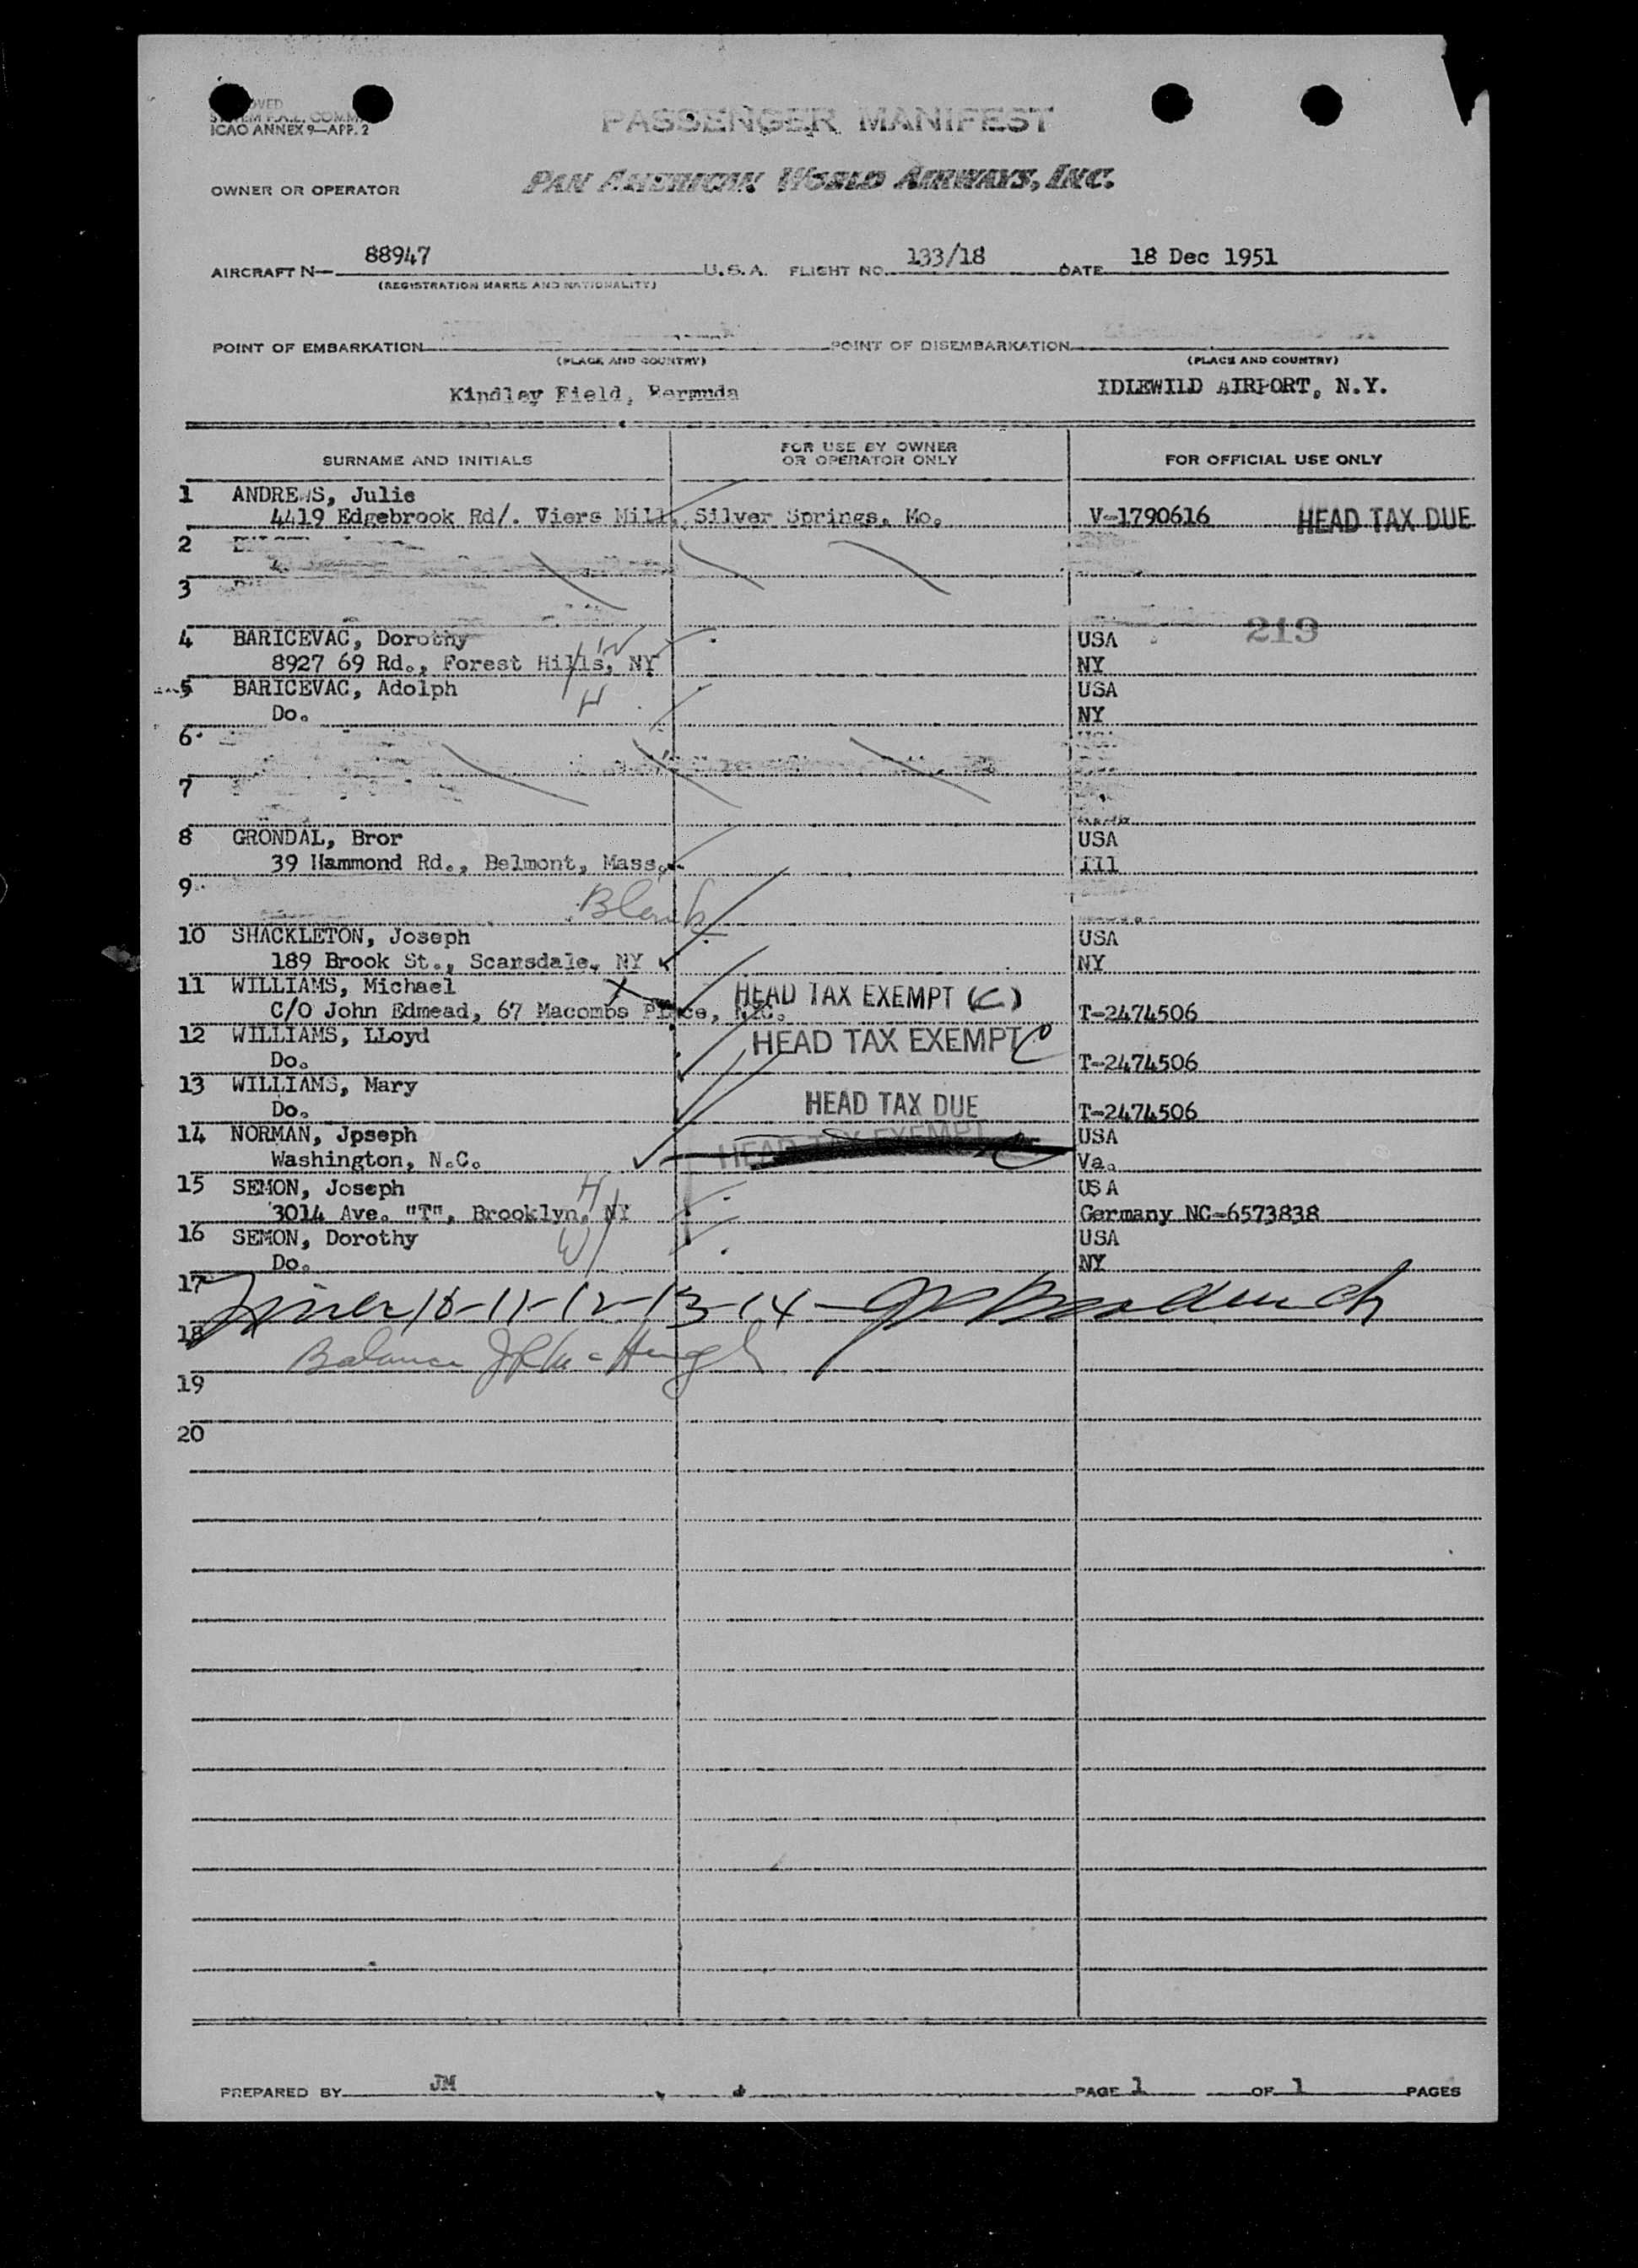 OVED
ICAO ANNEX 9—APP. 2
PASSENGER MANIFEST
OWNER OR OPERATOR PAN AMERICAN WORLD AIRWAYS, INC.
AIRCRAFT N— 88947 U.S.A. FLIGHT NO. 133/18 DATE 18 Dec 1951
(REGISTRATION MARKS AND NATIONALITY)
POINT OF EMBARKATION POINT OF DISEMBARKATION
(PLACE AND COUNTRY) (PLACE AND COUNTRY)
Kindley Field, Bermuda IDLEWILD AIRPORT, N.Y.
SURNAME AND INITIALS FOR USE BY OWNER OR OPERATOR ONLY FOR OFFICIAL USE ONLY
1 ANDREWS, Julie
4419 Edgebrook Rd/. Viers Mill, Silver Springs, Mo. V-1790616 HEAD TAX DUE
2
3
219
4 BARICEVAC, Dorothy W USA
8927 69 Rd., Forest Hills, NY NY
5 BARICEVAC, Adolph H USA
Do. NY
6
7
8 GRONDAL, Bror USA
39 Hammond Rd., Belmont, Mass. Ill
9 Blank
10 SHACKLETON, Joseph USA
189 Brook St., Scarsdale, NY NY
11 WILLIAMS, Michael HEAD TAX EXEMPT (C)
C/O John Edmead, 67 Macombs Place, NYC. T-2474506
12 WILLIAMS, LLoyd HEAD TAX EXEMPT C
Do. T-2474506
13 WILLIAMS, Mary HEAD TAX DUE
Do. T-2474506
14 NORMAN, Jpseph HEAD TAX EXEMPT USA
Washington, N.C. Va.
15 SEMON, Joseph H USA
3014 Ave. "T", Brooklyn, NY Germany NC-6573838
16 SEMON, Dorothy W USA
Do. NY
17 10-11-12-13-14-
18 Balance
19
20
PREPARED BY JM PAGE 1 OF 1 PAGES